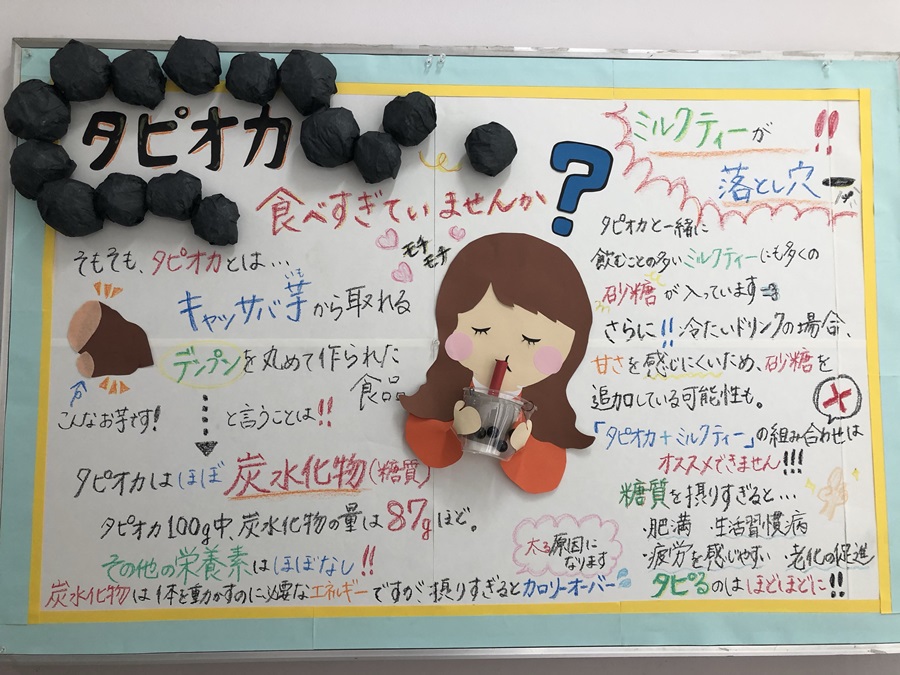 タピオカ
食べすぎていませんか?
そもそも、タピオカとは…
キャッサバ芋から取れる
いも
デンプンを丸めて作られた
食品
こんなお芋です!
と言うことは!!
タピオカはほぼ炭水化物(糖質)
タピオカ100g中、炭水化物の量は87gほど。
その他の栄養素はほぼなし!!
炭水化物は体を動かすのに必要なエネルギーですが摂りすぎるとカロリーオーバー
太る原因に
なります
モチ
モチ
ミルクティーが!!
落とし穴
タピオカと一緒に
飲むことの多いミルクティーにも多くの
砂糖が入っています
さらに!!冷たいドリンクの場合、
甘さを感じにくいため、砂糖を
追加している可能性も。
「タピオカ+ミルクティー」の組み合わせは
オススメできません!!!
糖質を摂りすぎると…
・肥満 ・生活習慣病
・疲労を感じやすい ・老化の促進
タピるのはほどほどに!!